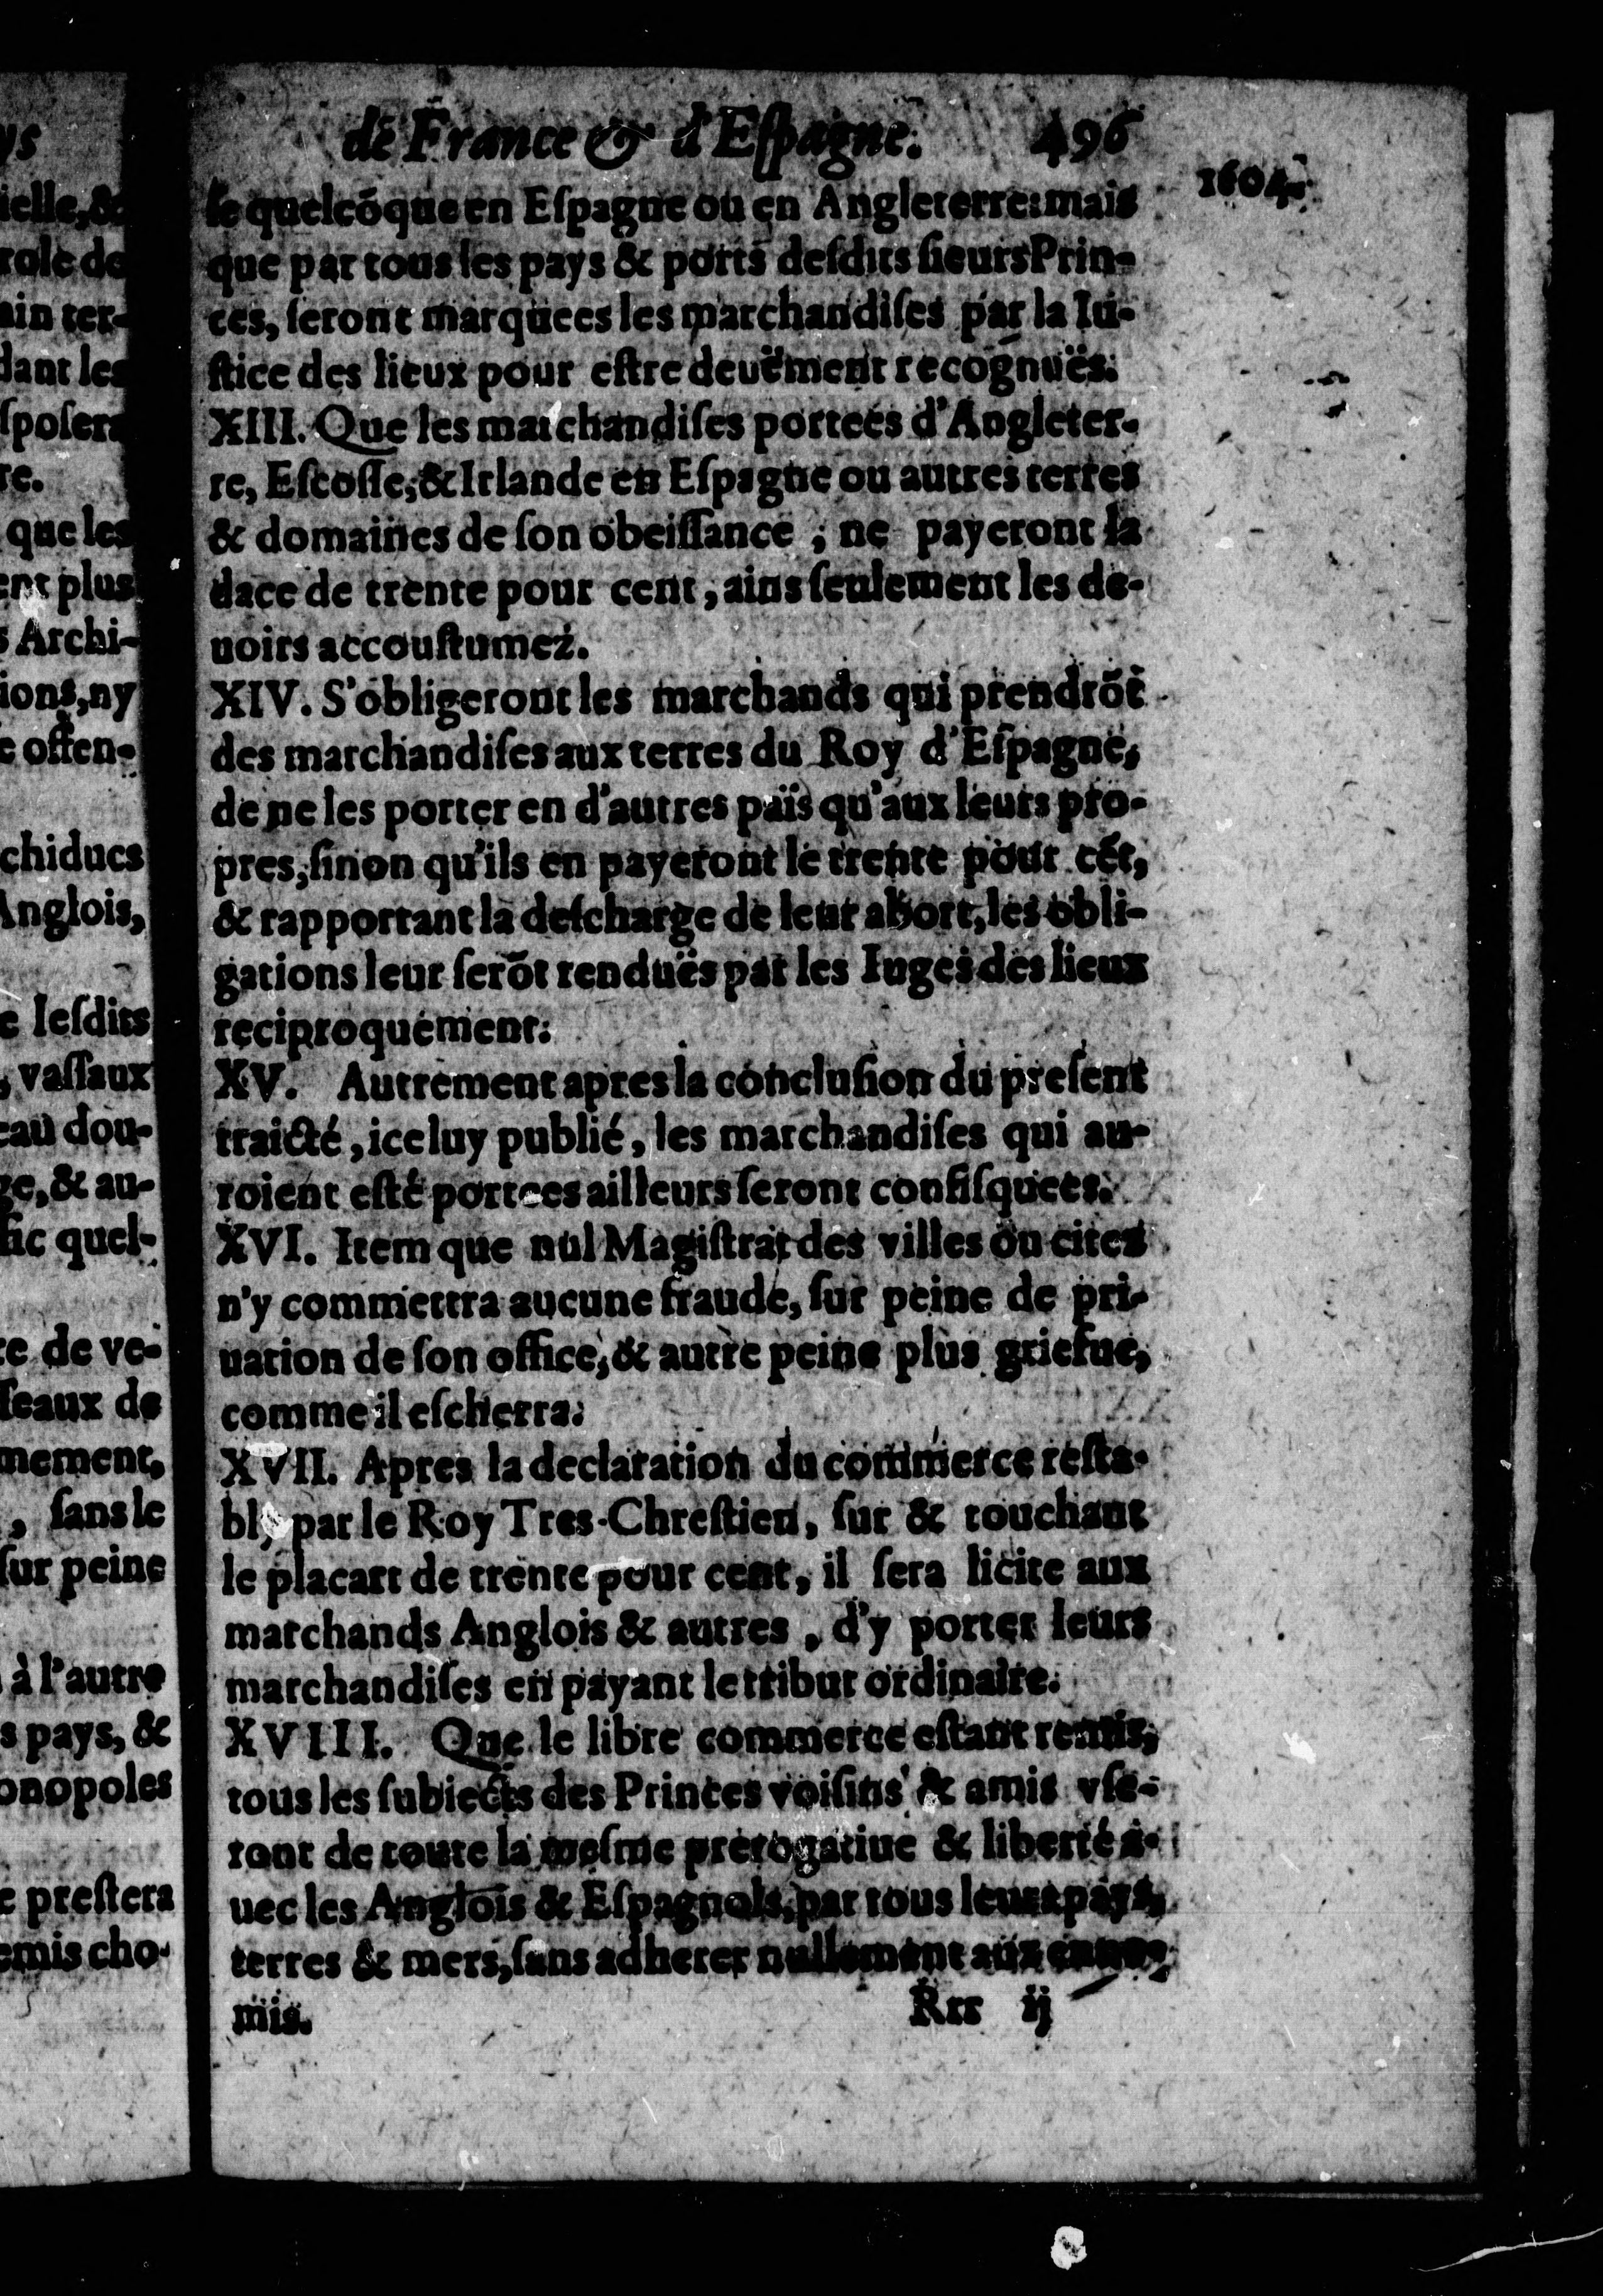 de France & d'Eſpagne. 496
1604.
le quelcõque en Eſpagne ou en Angleterre: mais
que par tous les pays & ports deſdits ſieurs Prin-
ces, ſeront marquees les marchandiſes par la Iu-
ſtice des lieux pour eſtre deuëment recognuës.
XIII. Que les marchandiſes portees d'Angleter-
re, Eſcoſſe, & Irlande en Eſpagne ou autres terres
& domaines de ſon obeiſſance ; ne payeront la
dace de trente pour cent, ains ſeulement les de-
uoirs accouſtumez.
XIV. S'obligeront les marchands qui prendrõt
des marchandiſes aux terres du Roy d'Eſpagne,
de ne les porter en d'autres païs qu'aux leurs pro-
pres, ſinon qu'ils en payeront le trente pour cẽt,
& rapportant la deſcharge de leur abort, les obli-
gations leur ſerõt renduës par les Iuges des lieux
reciproquement.
XV. Autrement apres la concluſion du preſent
traicté, iceluy publié, les marchandiſes qui au-
roient eſté portees ailleurs ſeront confiſquees.
XVI. Item que nul Magiſtrat des villes ou citez
n'y commettra aucune fraude, ſur peine de pri-
uation de ſon office, & autre peine plus griefue,
comme il eſcherra.
XVII. Apres la declaration du commerce reſta-
bly par le Roy Tres-Chreſtien, ſur & touchant
le placart de trente pour cent, il ſera licite aux
marchands Anglois & autres, d'y porter leurs
marchandiſes en payant le tribut ordinaire.
XVIII. Que le libre commerce eſtant remis,
tous les ſubiects des Princes voiſins & amis vſe-
ront de toute la meſme prerogatiue & liberté a-
uec les Anglois & Eſpagnols, par tous leurs pays,
terres & mers, ſans adherer nullement aux enne-
mis.
Rrr ij
ys
ielle, &
role de
ain ter-
dant les
ſpoſer
re.
que les
ent plus
s Archi-
ions, ny
e offen-
chiducs
Anglois,
e leſdits
, vaſſaux
eau dou-
ge, & au-
fic quel-
re de ve-
ſeaux de
nement,
, ſans le
ſur peine
à l'autre
s pays, &
onopoles
e preſtera
emis cho-